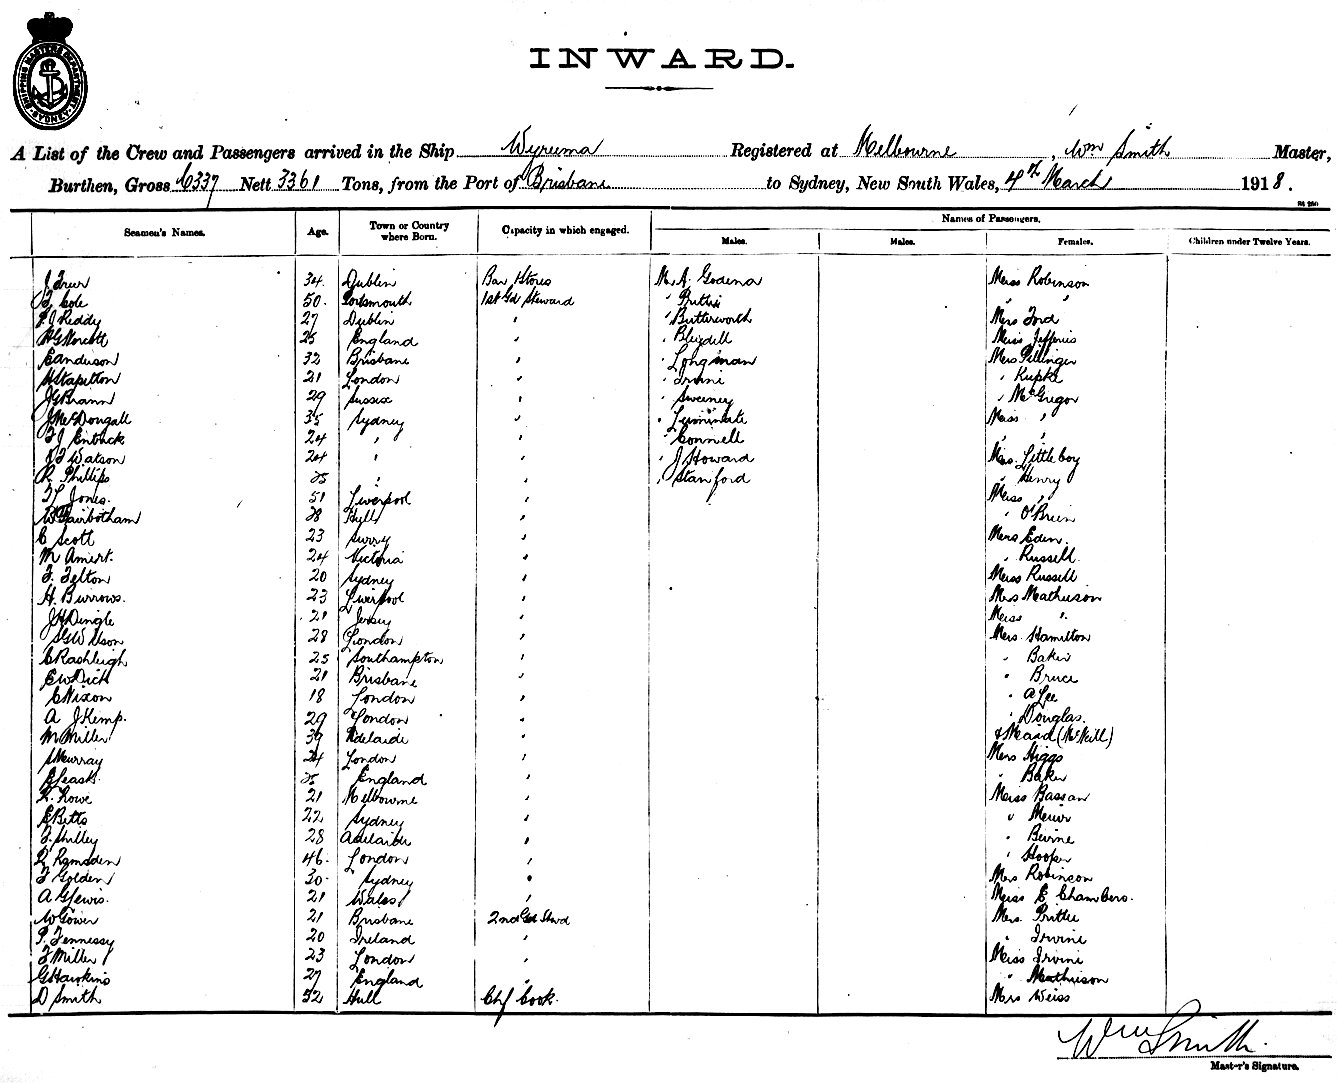 SHIPPING MASTERS DEPARTMENT SYDNEY
INWARD.
A List of the Crew and Passengers arrived in the Ship Wyreema Registered at Melbourne, Wm Smith Master,
Burthen, Gross 6337 Nett 3361 Tons, from the Port of Brisbane to Sydney, New South Wales, 4th March 1918.
Names of Passengers.
Seamen's Names. Age. Town or Country where Born. Capacity in which engaged. Males. Males. Females. Children under Twelve Years.
34 Dublin Bar & Stores M. A. Godena Miss Robinson
Cole 50. Portsmouth 1st Gd Steward " "
Reddy 27 Dublin " " Butterworth Mrs Ford
25 England " " Miss Jefferies
E Anderson 32 Brisbane " " Longman Mrs Pillinger
H Stapelton 21 London " " Irvine "
J G Brann 29 Sussex " " Sweeney " McGregor
J McDougall 35 Sydney " " Miss "
24 " " " Connell " "
Watson 24 " " " J Howard Mrs. Littleboy
R. Phillips 25 " " " Stanford " Henry
Jones. 51 Liverpool " Miss "
W Fairbotham 28 Hull " " O'Brien
C Scott 23 Surry " Mrs Eden.
M 24 Victoria " " Russell.
F. Felton 20 Sydney " Miss Russell
H. Burrows. 23 Liverpool " Mrs Mathieson
J H Dingle 21 Jersey " Miss "
Wilson 28 London " Mrs. Hamilton
C Rashleigh 25 Southampton " " Baker
E W Dick 21 Brisbane " " Bruce
C Nixon 18 London " " A Lee
A J Kemp. 29 London " " Douglas.
M Miller 39 Adelaide " & Maid (McNeill)
Murray 24 London " Mrs Higgs
25 England " " Baker
Rowe 21 Melbourne " Miss Bassan
E Betts 22 Sydney "
28 Adelaide " " Beirne
R Ramsden 46. London " " Hooper
F Golden 30. Sydney " Mrs Robinson
A G Lewis. 21 Wales " Miss E Chambers.
W Gower 21 Brisbane 2nd Gd Stwd Mrs.
P. Fennessy 20 Ireland " " Irvine
F Miller 23 London " Miss Irvine
G Hawkins 27 England " " Mathieson
D Smith 52 Hull Chf Cook. Mrs Weiss
Wm Smith.
Master's Signature.